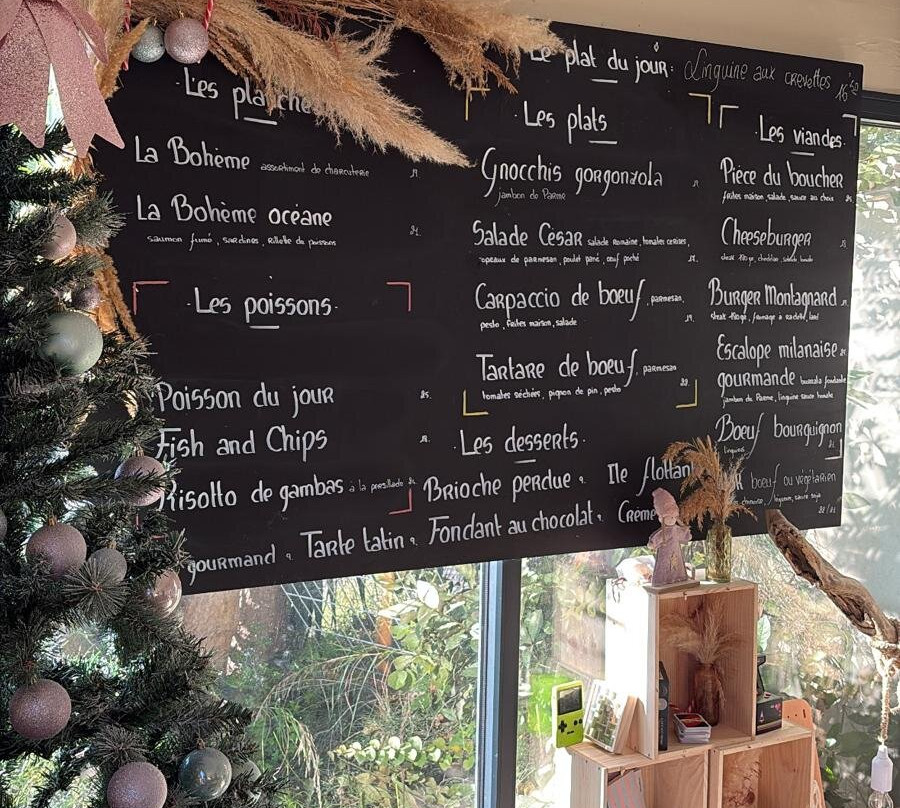 Le plat du jour: Linguine aux crevettes 16'50
Les planches
La Bohème assortiment de charcuterie
La Bohème océane
saumon fumé, sardines, Rillette de poissons
Les poissons
Poisson du jour
Fish and Chips
Risotto de gambas à la persillade
Les plats
Gnocchis gorgonzola
jambon de Parme
Salade César salade Romaine, tomates cerises,
copeaux de parmesan, poulet pané, œuf poché
Carpaccio de boeuf, parmesan,
pesto, frites maison, salade
Tartare de boeuf, parmesan
tomates séchées, pignon de pin, pesto
Les viandes
Pièce du boucher
frites maison, salade, sauce au choix
Cheeseburger
Burger Montagnard
Escalope milanaise
gourmande burrata fondante
jambon de Parme, linguine sauce tomate
Boeuf bourguignon
boeuf ou végétarien
Les desserts
Brioche perdue Ile flottan
gourmand Tarte tatin Fondant au chocolat Crème